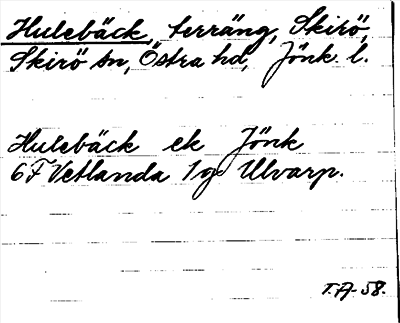 Hulebäck, terräng, Skirö,
Skirö sn, Östra hd, Jönk. l.
Hulebäck ek Jönk
6F Vetlanda 1g Ulvarp.
T.A-58.